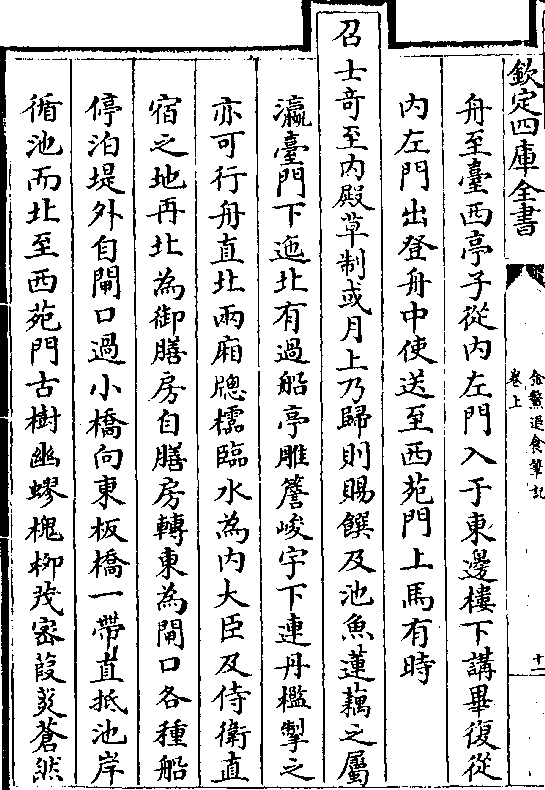 欽定四庫全書
金鰲退食筆記
卷上
十一
舟至臺西亭子從内左門入于東邊樓下講畢復從
内左門出登舟中使送至西苑門上馬有時
召士竒至内殿草制或月上乃歸則賜饌及池魚蓮藕之屬
瀛臺門下迤北有過船亭雕簷峻宇下連丹檻掣之
亦可行舟直北兩廂牕櫺臨水為内大臣及侍衛直
宿之地再北為御膳房自膳房轉東為閘口各種船
停泊堤外自閘口過小橋向東板橋一帶直抵池岸
循池而北至西苑門古樹幽蟉槐栁茂宻葭菼蒼然